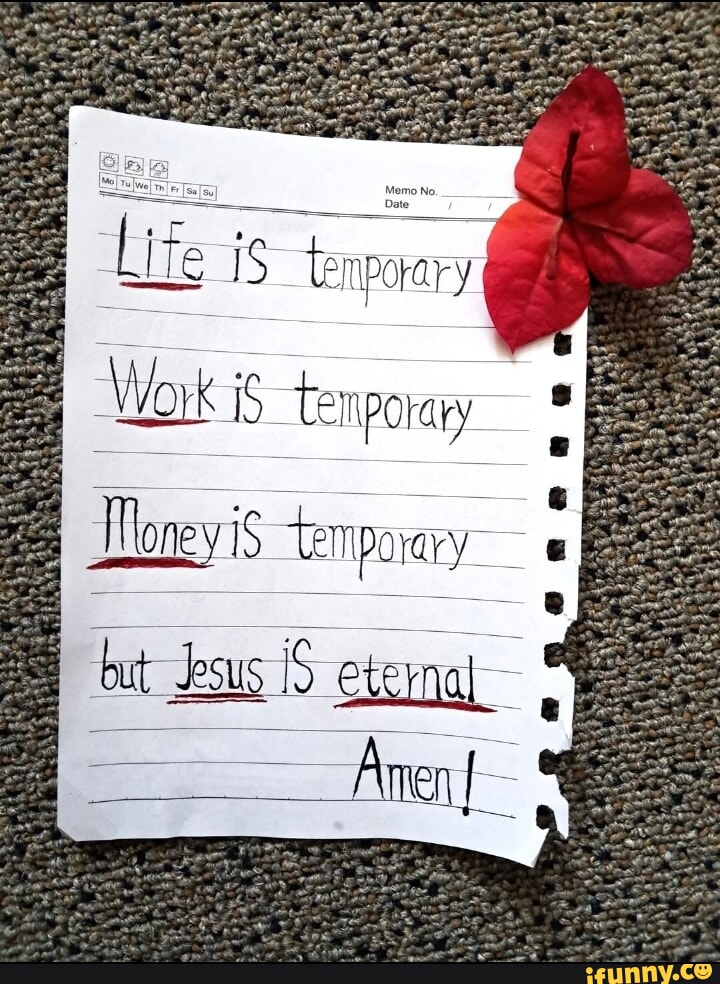 Mo Tu We Th Fr Sa Su
Memo No.
Date / /
Life is temporary
Work is temporary
Money is temporary
but Jesus is eternal
Amen!
ifunny.co